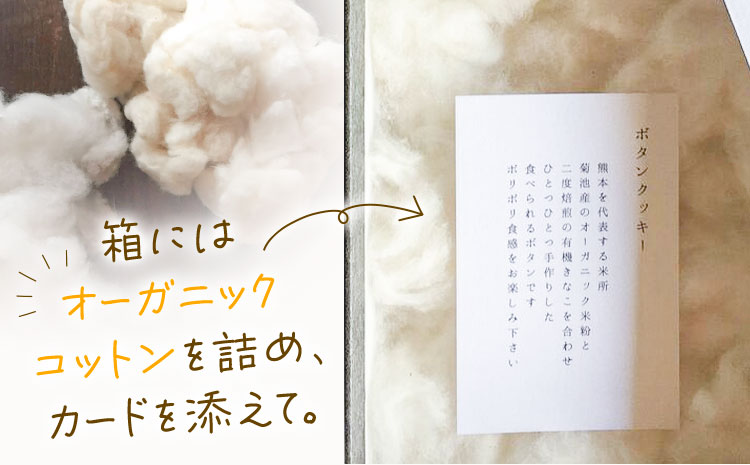 箱には
オーガニック
コットンを詰め、
カードを添えて。
ボタンクッキー
熊本を代表する米所
菊池産のオーガニック米粉と
二度焙煎の有機きなこを合わせ
ひとつひとつ手作りした
食べられるボタンです
ポリポリ食感をお楽しみ下さい